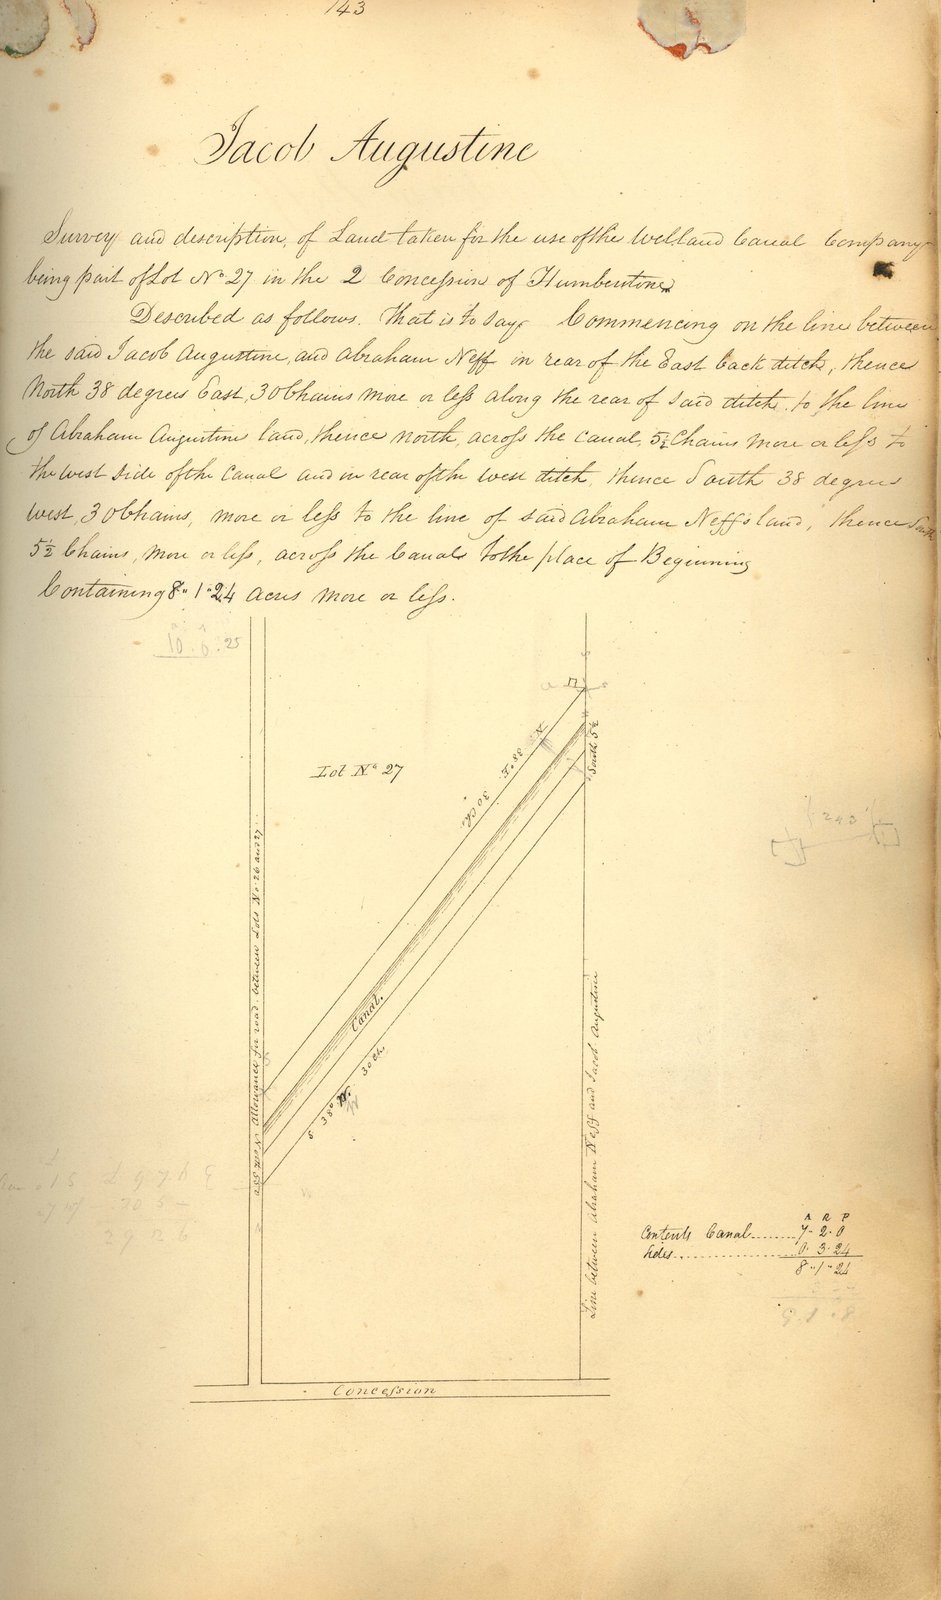 143
Jacob Augustine
Survey and description, of Land taken for the use of the Welland Canal Company
being part of Lot No 27 in the 2 Concession of Humberstone
Described as follows. That is to say. Commencing on the line between
the said Jacob Augustine, and Abraham Neff in rear of the East back ditch, thence
North 38 degrees East, 30 Chains more or less along the rear of said ditch, to the line
of Abraham Augustine land, thence north, across the canal, 5½ Chains more or less to
the west side of the Canal and in rear of the west ditch, thence South 38 degrees
west, 30 Chains, more or less to the line of said Abraham Neff's land, thence South
5½ Chains, more or less, across the Canals to the place of Beginning
Containing 8" 1" 24 acres more or less.
10 . 0 : 25
Lot No 27
N. 38° E. 30 Ch.
South 5½
Canal.
S 38° W. 30 Ch.
Allowance for road between Lots No. 26 and 27
Line between Abraham Neff and Jacob Augustine
A R P
Contents Canal......7" 2" 0
Sides......0. 3. 24
8" 1" 24
Concession